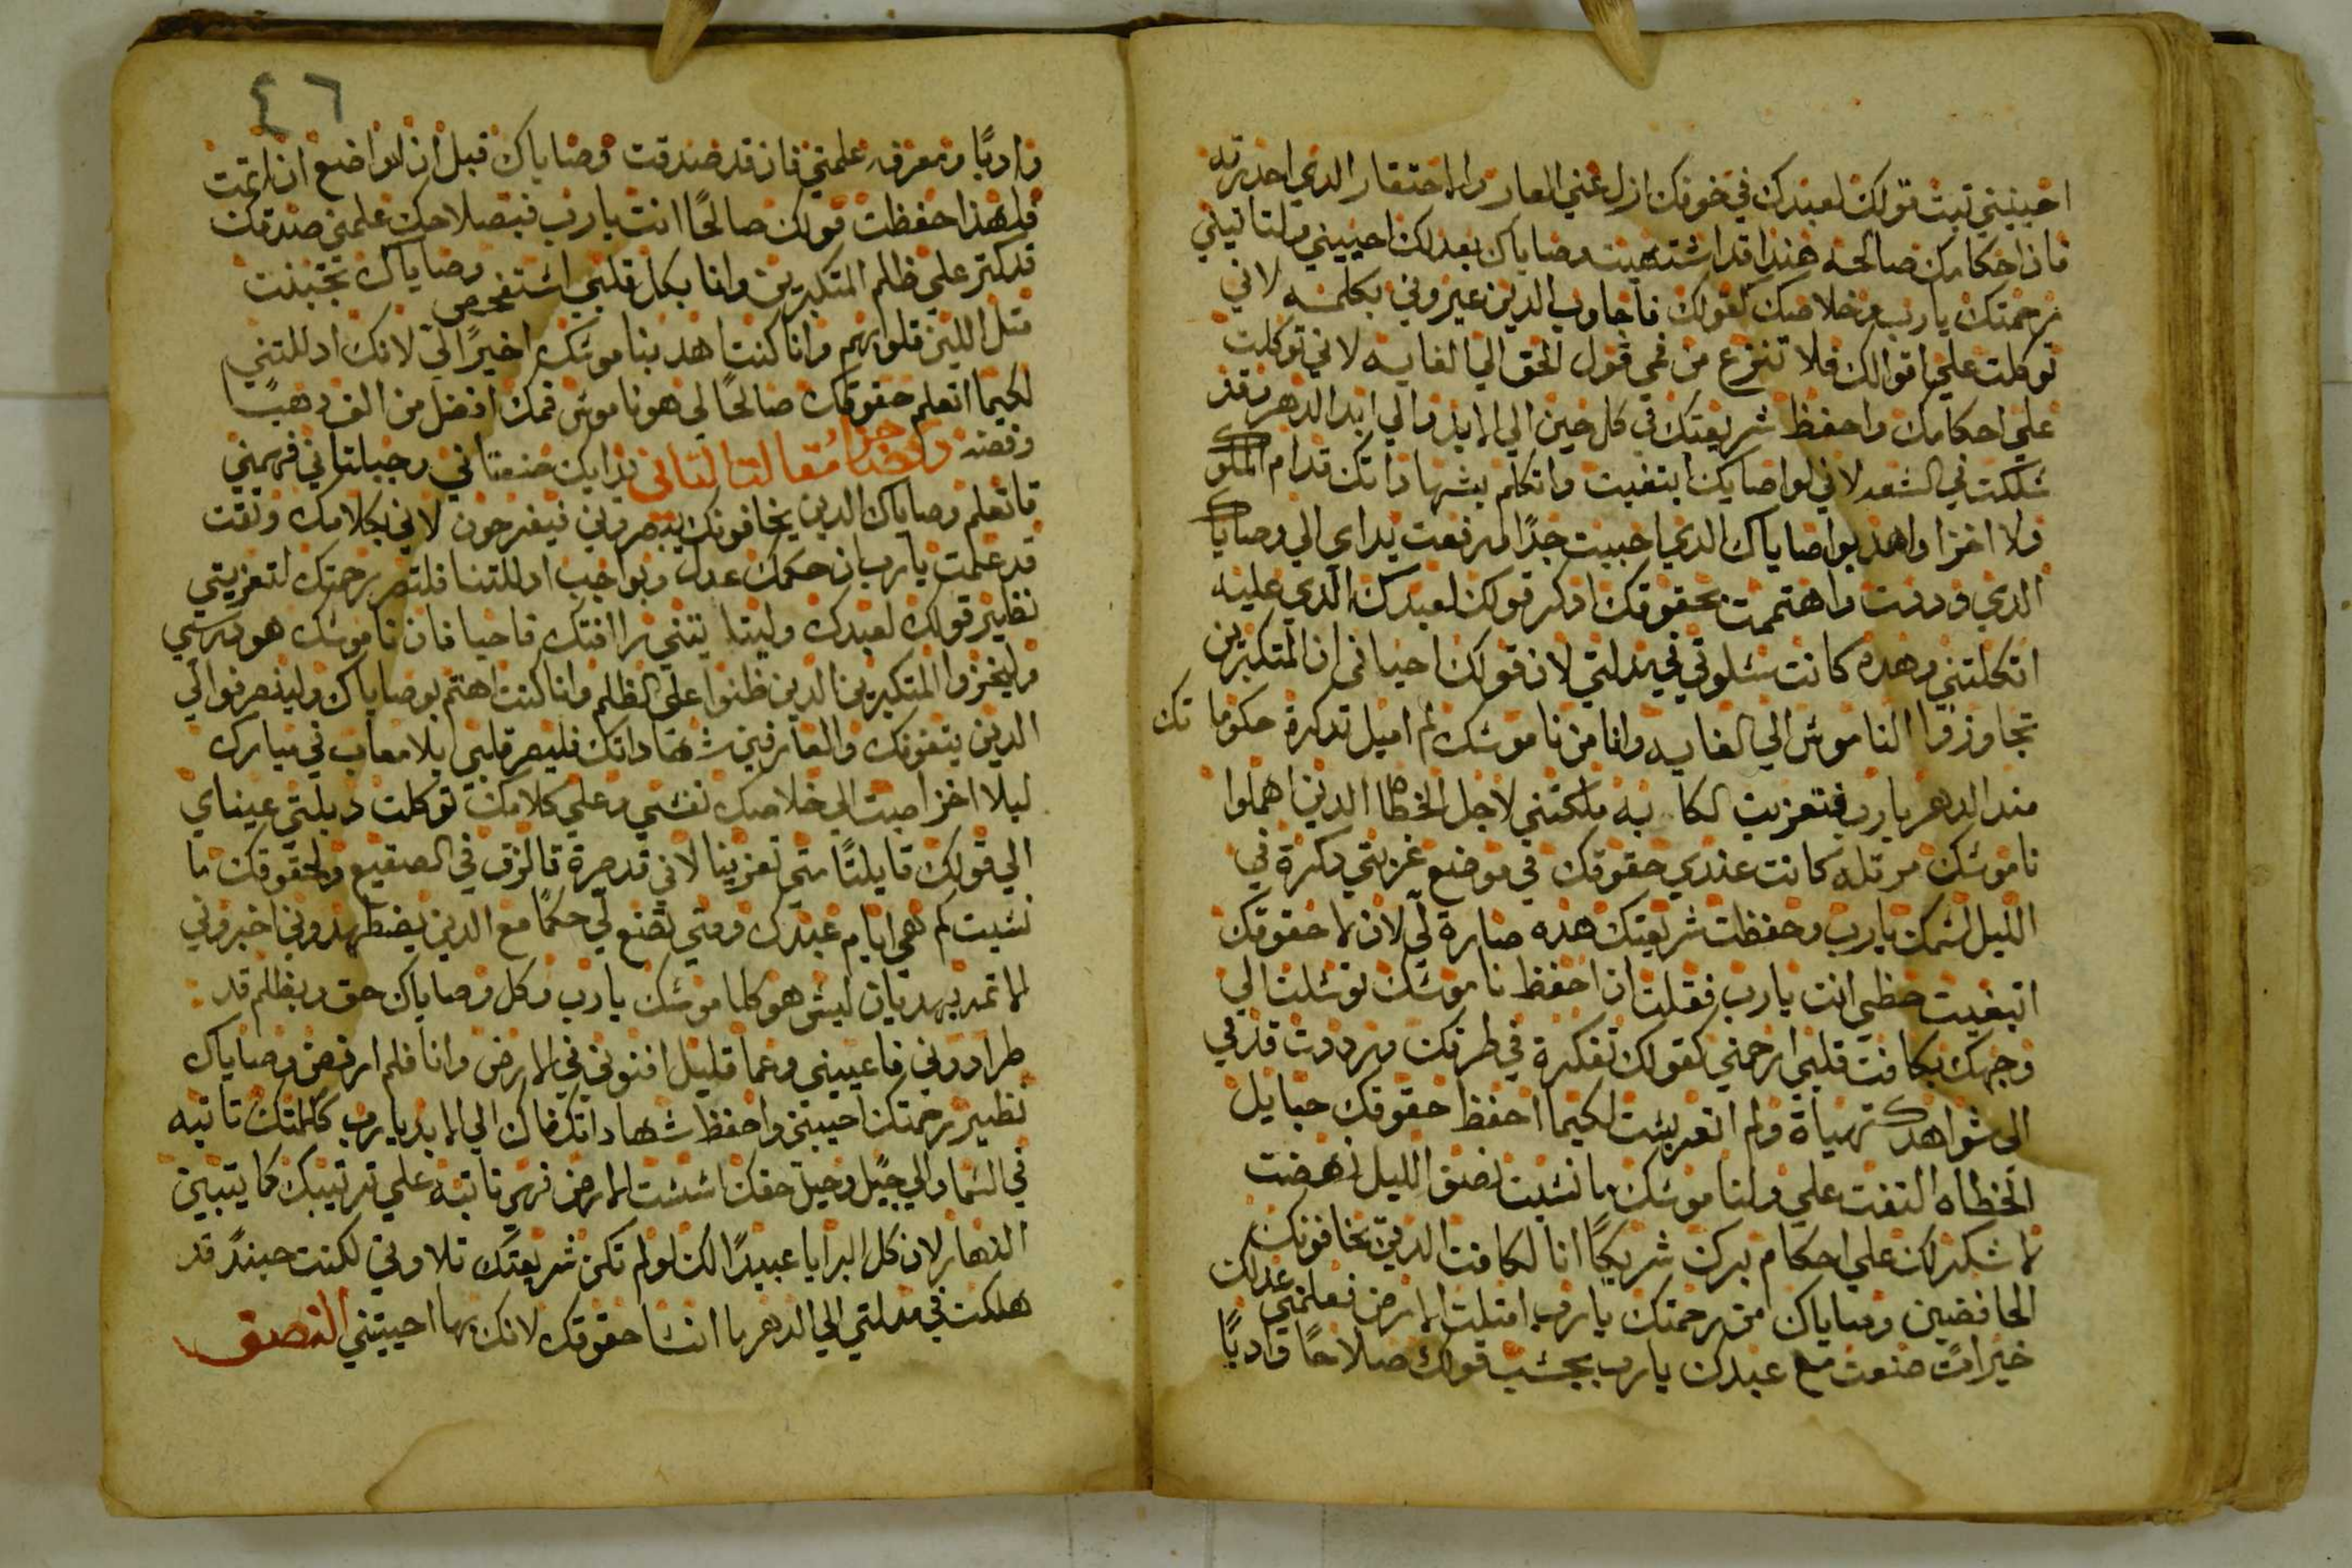 احييني تبت قولك لعبدك في خوفك ازل عني العار والاحتقار الدي احدرته
فان احكامك صالحه هندا قد اشتهيت وصاياك بعدلك احييني ولتاتيني
رحمتك يارب وخلاصك كقولك فاجاوب الدين عيروني بكلمه لاني
توكلت علي اقوالك فلا تنزع من فمي قول الحق الي الغايه لاني توكلت
علي احكامك واحفظ شريعتك في كل حين الي الابد والي ابد الدهر وقد
سلكت في السعه لاني لواصايك ابتغيت واتكلم بشهاداتك قدام الملوك
ولا اخزا واهد بواصاياك الدي احببت جدًا ورفعت يداي الي وصاياك
الدي وددت واهتممت بحقوقك ادكر قولك لعبدك الدي عليه
اتكلتني وهده كانت سلوتي في مدلتي لان قولك احياني ان المتكبرين
تجاوزوا الناموس الي الغايه وانا من ناموسك لم اميل تدكرة حكوماتك
مند الدهر يارب فتعزيت الكابه ملكتني لاجل الخطاه الدين اهملوا
ناموسك مرتله كانت عندي حقوقك في موضع غربتي دكرة في
الليل اسمك يارب وحفظت شريعتك هده صارة لي لان لا حقوقك
ابتغيت حظي انت يارب فقلت ان احفظ ناموسك توسلت الي
وجهك بكافت قلبي ارحمني كقولك تفكرة في طرقك ورددت قدمي
الي شواهدك تهياة ولم اتعربست لكيما احفظ حقوقك حبايل
الخطاه التفت علي ولناموسك ما نسيت نصف الليل نهضت
لاشكر لك علي احكام برك شريكًا انا لكافت الدين يخافونك
الحافضين وصاياك من رحمتك يارب امتلت الارض فعلمني عدلك
خيرات صنعت مع عبدك يارب بحسب قولك صلاحًا وادبًا
٤٦
وادبًا ومعرفه علمني فان قد صدقت وصاياك قبل ان اتواضع انا تمت
فلهذا حفظت قولك صالحًا انت يارب فبصلاحك علمني صدقك
قد كتر علي ظلم المتكبرين وانا بكل قلبي استفحص وصاياك تجبنت
متل اللبن قلوبهم وانا كنت اهد بناموسك اخيرًا لي لانك ادللتني
لكيما اتعلم حقوقك صالحًا لي هو ناموس فمك افضل من الف دهبًا
وفضه مقالت التاني يدايك صنعتاني وجبلتاني فهمني
فاتعلم وصاياك الدين يخافونك يبصروني فيفرحون لاني بكلامك وتقت
قد علمت يارب ان حكمك عدل وبواجب ادللتنا فلتصر رحمتك لتعزيتي
نظير قولك لعبدك ولتاتيتني رافتك فاحيا فان ناموسك هو درسي
وليخزوا المتكبرين الدين ظنوا علي الظلم وانا كنت اهتم بوصاياك ولينصرفوا الي
الدين يتقونك والعارفين شهاداتك فليصر قلبي بلا معاب في مبارك
ليلا اخزا صبت الي خلاصك نفسي وعلي كلامك توكلت دبلتي عيناي
الي قولك قايلتًا متي تعزينا لاني قد صرة كالزق في الصقيع ولحقوقك ما
نسيت كم هي ايام عبدك ومتي تصنع لي حكمًا مع الدين يضطهدوني اخبروني
لاتمه بهديان ليس هو كناموسك يارب وكل وصاياك حق وبظلم قد
طرادوني فاعيني وعما قليل افنوني في الارض وانا فلم ارفض وصاياك
نظير رحمتك احييني واحفظ شهادات فاك الي الابد يارب كلمتك تابته
في السما والي جيل وجيل حقك اسست الارض فهي تابته علي ترتيبك كما يتبين
النهار لان كل البرايا عبيدًا لك لو لم تكن شريعتك تلاوتي لكنت حيندً قد
هلكت في مدلتي الي الدهر ما انسا حقوقك لانك بها احييتني النصف